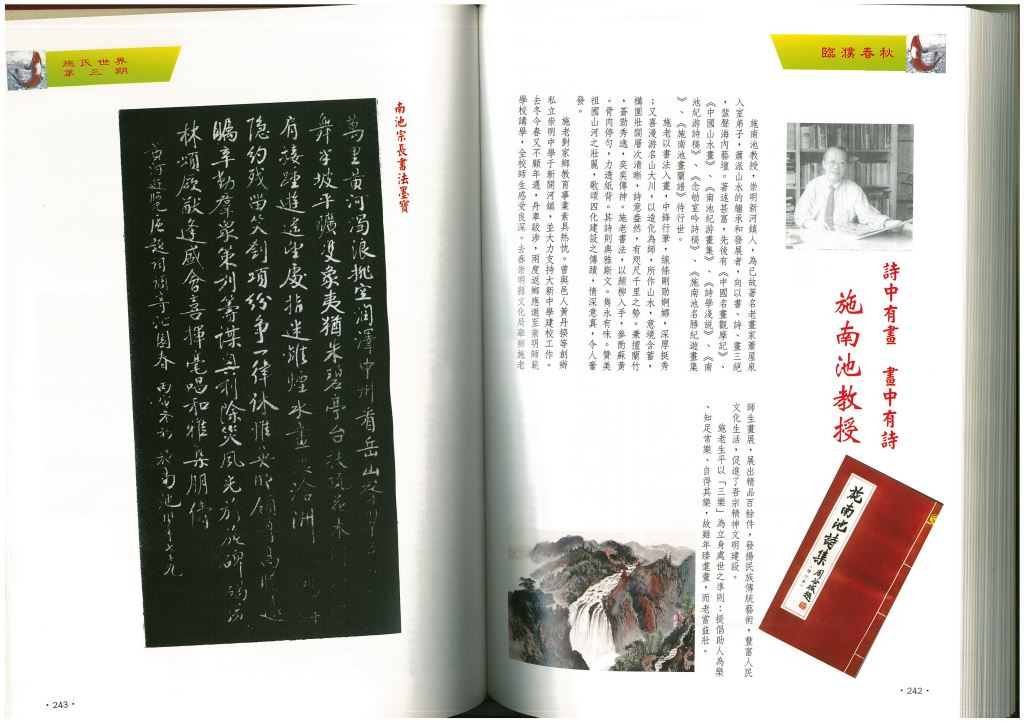 臨濮春秋
詩中有畫　畫中有詩
施南池教授
施南池詩集
施南池教授，崇明新河鎮人，為已故著名老畫家蕭屋泉
入室弟子，蕭派山水的繼承和發展者，向以書、詩、畫三絕
，蜚聲海內藝壇。著述甚富，先後有《中國名畫觀摩記》、
《中國山水畫》、《南池紀游畫集》、《詩學淺說》、《南
池紀游詩稿》、《念劬室吟詩稿》、《施南池名勝紀遊畫集
》、《施南池畫蘭譜》待行世。
施老以書法入畫，中鋒行筆，線條剛勁婀娜，深厚挺秀
；又喜漫游名山大川，以造化為師，所作山水，意境含蓄，
構圖壯闊層次清晰，詩意盎然，有咫尺千里之勢。兼擅蘭竹
，蒼勁秀逸，奕奕傳神。施老書法，以顏柳入手，參酌蘇黃
。骨肉停勻，力透紙背。其詩則典雅斯文。雋永有味。贊美
祖國山河之壯麗，歌頌四化建設之傳蹟，情深意真，令人奮
發。
施老對家鄉教育事業素具熱忱。曾與邑人黃丹揆等創辦
私立崇明中學于新開河鎮，並大力支持大新中學建校工作。
去冬今春又不願年邁，舟車跋涉，兩度返鄉應邀至崇明師範
學校講學，全校師生感受良深。去春崇明縣文化局舉辦施老
師生畫展，展出精品百餘件，發揚民族傳統藝術，豐富人民
文化生活，促進了吾宗精神文明建設。
施老生平以「三樂」為立身處世之準則：提倡助人為樂
、知足常樂、自得其樂，故雖年臻耄耋，而老當益壯。
·242·
施氏世界
第三期
南池宗長書法墨寶
萬里黃河濁浪掀空潤澤中州看岳山
舞半坡平曠雙象夷猶朱碧亭台扶疏花木
有接踵遊遙望處指迷離煙水洲
隱約殘留笑劉項紛爭一
矚辛勤羣眾籌謀興利除災風光
林頌厥猷逢盛會喜揮毫唱和雅集朋儔
黃河遊覽區施南池
·243·